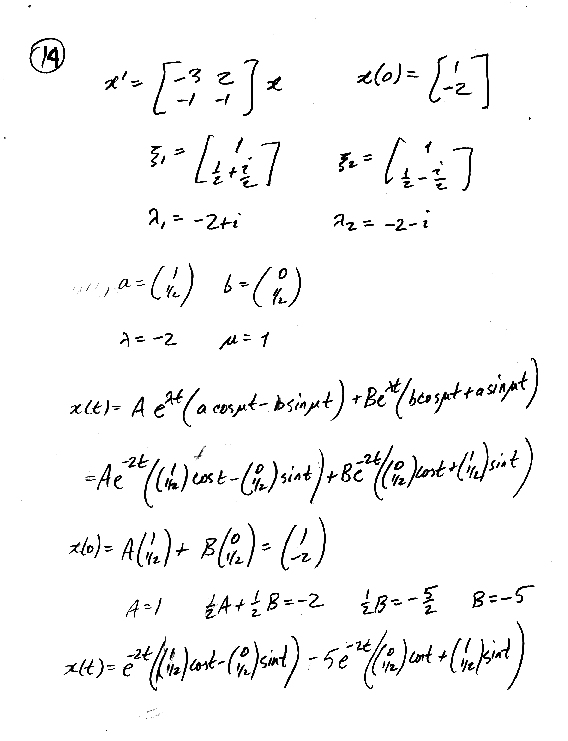 14
x' = [-3 2; -1 -1] x    x(0) = [1; -2]
ξ₁ = [1; 1/2 + i/2]    ξ₂ = [1; 1/2 - i/2]
λ₁ = -2+i    λ₂ = -2-i
, a = (1; 1/2)    b = (0; 1/2)
λ = -2    μ = 1
x(t) = A e^{λt} (a cos μt - b sin μt) + B e^{λt} (b cos μt + a sin μt)
= A e^{-2t} ((1; 1/2) cos t - (0; 1/2) sin t) + B e^{-2t} ((0; 1/2) cos t + (1; 1/2) sin t)
x(0) = A (1; 1/2) + B (0; 1/2) = (1; -2)
A = 1    1/2 A + 1/2 B = -2    1/2 B = -5/2    B = -5
x(t) = e^{-2t} ((1; 1/2) cos t - (0; 1/2) sin t) - 5 e^{-2t} ((0; 1/2) cos t + (1; 1/2) sin t)